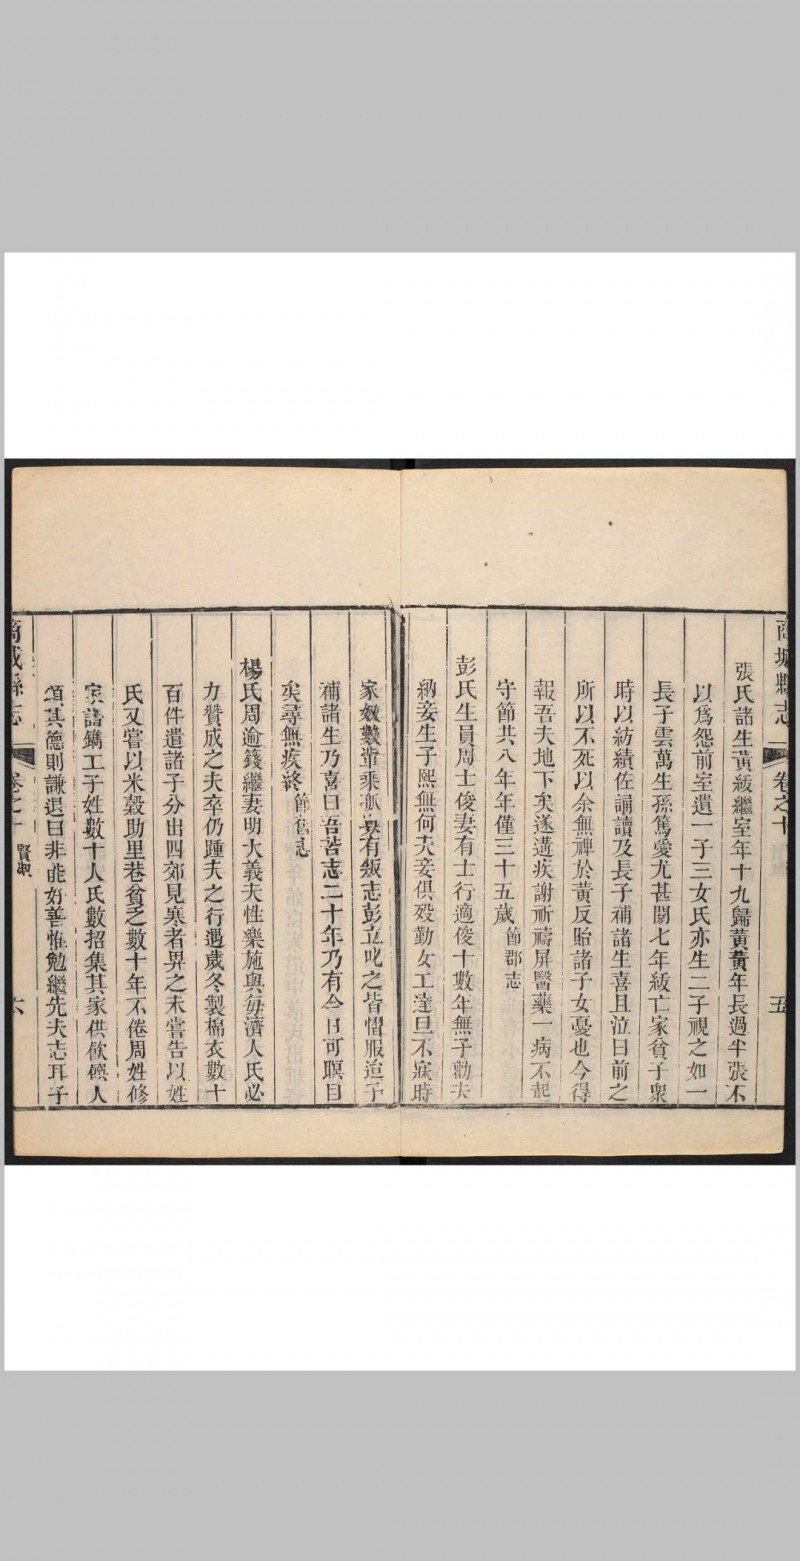 商城縣志
卷之十
五
張氏諸生黃紱繼室年十九歸黃黃年長過半張不
以爲怨前室遺一子三女氏亦生二子視之如一
長子雲萬生孫篤愛尤甚閱七年紱亡家貧子衆
時以紡績佐誦讀及長子補諸生喜且泣曰前之
所以不死以余無裨於黃反貽諸子女憂也今得
報吾夫地下矣遂遘疾謝祈禱屏醫藥一病不起
守節共八年年僅三十五歲節郡志
彭氏生員周士俊妻有士行適俊十數年無子勸夫
納妾生子熙無何夫妾俱歿勤女工達旦不寐時
家奴數輩乘孤 有叛志彭立叱之皆慴服迨子
補諸生乃喜曰吾苦志二十年乃有今日可瞑目
矣尋無疾終節舊志
楊氏周逾籛繼妻明大義夫性樂施與每濟人氏必
力贊成之夫卒仍踵夫之行遇歲冬製棉衣數十
百件遣諸子分出四郊見寒者畀之未嘗告以姓
氏又嘗以米穀助里巷貧乏數十年不倦周姓修
家譜鐫工子姓數十人氏數招集其家供飲 人
頌其德則謙退曰非能好善惟勉繼先夫志耳子
商城縣志
卷之十
賢淑
六